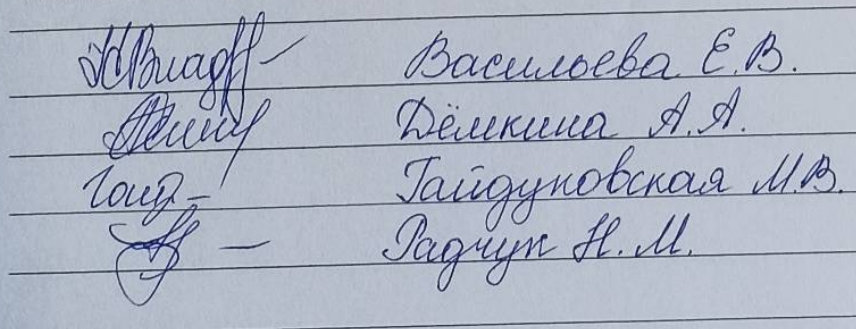 Васильева Е.В.
Дёмкина А.А.
Гайдуковская М.В.
Радчук Н.М.